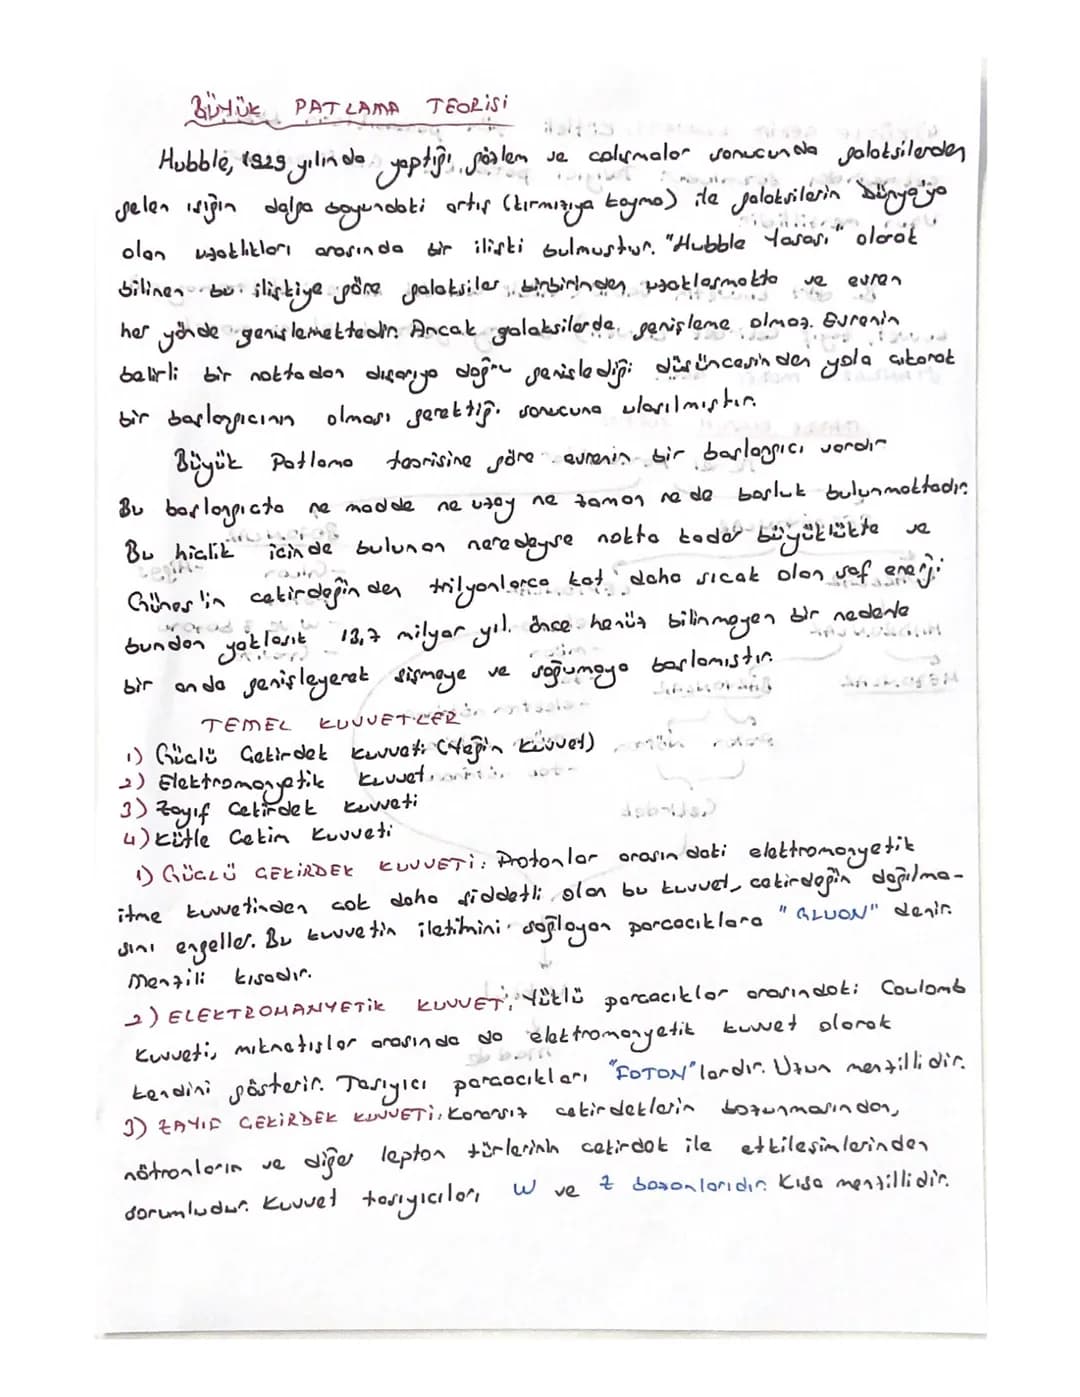 BÜYÜK PATLAMA TEORİSİ
Hubble, 1929 yılında yaptığı gözlem ve çalışmalar sonucunda galaksilerden
gelen ışığın dalga boyundaki artış (kırmızıya kayma) ile galaksilerin Dünya'ya
olan uzaklıkları arasında bir ilişki bulmuştur. "Hubble Yasası" olarak
bilinen bu ilişkiye göre galaksiler birbirinden uzaklaşmakta ve evren
her yönde genişlemektedir. Ancak galaksilerde genişleme olmaz. Evrenin
belirli bir noktadan dışarıya doğru genişlediği düşüncesinden yola çıkarak
bir başlangıcının olması gerektiği sonucuna ulaşılmıştır.
Büyük Patlama teorisine göre evrenin bir başlangıcı vardır
Bu başlangıçta ne madde ne uzay ne zaman ne de boşluk bulunmaktadır.
Bu hiçlik içinde bulunan neredeyse nokta kadar büyüklükte ve
Güneş'in çekirdeğinden trilyonlarca kat daha sıcak olan saf enerji
bundan yaklaşık 13,7 milyar yıl önce henüz bilinmeyen bir nedenle
bir anda genişleyerek şişmeye ve soğumaya başlamıştır.
TEMEL KUVVETLER
1) Güçlü Çekirdek Kuvveti (Yeğin Kuvvet)
2) Elektromanyetik Kuvvet
3) Zayıf Çekirdek Kuvveti
4) Kütle Çekim Kuvveti
1) GÜÇLÜ ÇEKİRDEK KUVVETİ: Protonlar arasındaki elektromanyetik
itme kuvvetinden çok daha şiddetli olan bu kuvvet, çekirdeğin dağılma-
sını engeller. Bu kuvvetin iletimini sağlayan parçacıklara "GLUON" denir.
Menzili kısadır.
2) ELEKTROMANYETİK KUVVET: Yüklü parçacıklar arasındaki Coulomb
Kuvveti, mıknatıslar arasında da elektromanyetik kuvvet olarak
kendini gösterir. Taşıyıcı parçacıkları "FOTON"lardır. Uzun menzillidir.
3) ZAYIF ÇEKİRDEK KUVVETİ: Kararsız çekirdeklerin bozunmasından,
nötronların ve diğer lepton türlerinin çekirdek ile etkileşimlerinden
sorumludur. Kuvvet taşıyıcıları W ve Z bozonlarıdır. Kısa menzillidir.